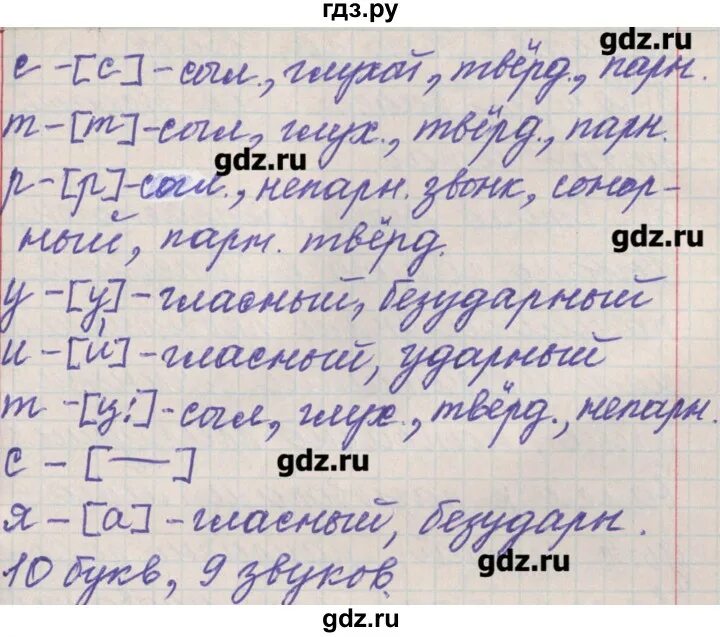 гдз.ру
gdz.ru
с - [с] - согл., глухой, твёрд., парн.
т - [т] - согл, глух., твёрд., парн.
gdz.ru
р - [р] - согл., непарн. звонк, сонор-
ный, парн. твёрд.
gdz.ru
у - [у] - гласный, безударный
и - [и́] - гласный, ударный
т - [ц:] - согл, глух., твёрд., непарн.
с - [—]
gdz.ru
я - [а] - гласный, безударн.
gdz.ru
10 букв, 9 звуков.
gdz.ru